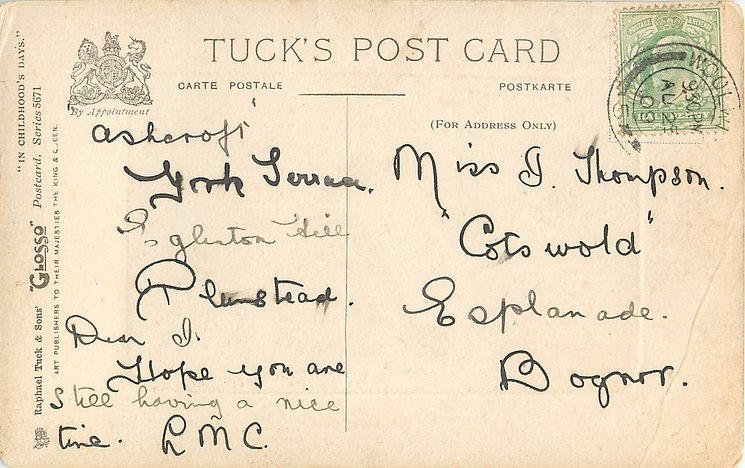 TUCK'S POST CARD
CARTE POSTALE
POSTKARTE
By Appointment
(FOR ADDRESS ONLY)
"IN CHILDHOOD'S DAYS."
Raphael Tuck & Sons' "GLOSSO" Postcard. Series 5671
ART PUBLISHERS TO THEIR MAJESTIES THE KING & QUEEN.
"Ashcroft"
York Terrace.
Eglinton Hill
Plumstead.
Dear J.
Hope you are
still having a nice
time. L M C.
Miss J. Thompson.
"Cotswold"
Esplanade.
Bognor.
9.30 PM
AU 25
09